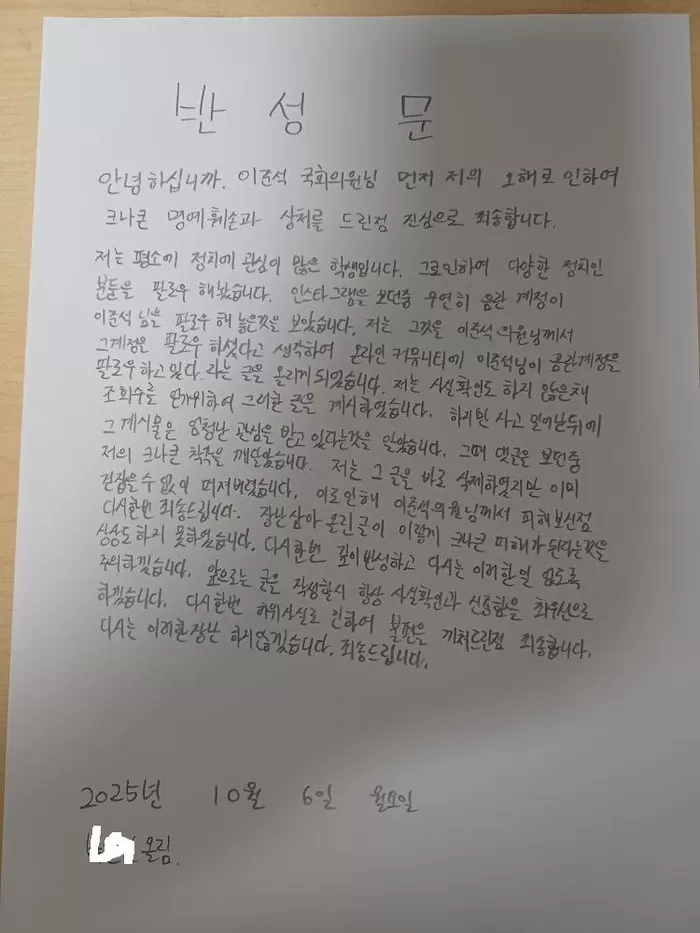 반 성 문
안녕하십니까. 이준석 국회의원님 먼저 저의 오해로 인하여
크나큰 명예훼손과 상처를 드린점 진심으로 죄송합니다.
저는 평소에 정치에 관심이 많은 학생입니다. 그로인하여 다양한 정치인
분들을 팔로우 해놨습니다. 인스타그램을 보던중 우연히 음란 계정이
이준석 님을 팔로우 해 놓은것을 보았습니다. 저는 그것을 이준석 의원님께서
그계정을 팔로우 하셨다고 생각하여 온라인 커뮤니티에 이준석님이 음란계정을
팔로우 하고 있다. 라는 글을 올리게 되었습니다. 저는 사실확인도 하지 않은채
조회수를 위하여 그러한 글을 게시하였습니다. 하지만 자고 일어난뒤에
그 게시물은 엄청난 관심을 받고 있다는것을 알았습니다. 그때 댓글을 보던중
저의 크나큰 착각을 깨달았습니다. 저는 그 글을 바로 삭제하였지만 이미
걷잡을 수 없이 퍼져버렸습니다. 이로인해 이준석의원님께서 피해보신점
다시한번 죄송드립니다. 장난삼아 올린글이 이렇게 크나큰 피해가 된다는것을
상상도 하지 못하였습니다. 다시한번 깊이반성하고 다시는 이러한일 없도록
주의하겠습니다. 앞으로는 글을 작성할시 항상 사실확인과 신중함을 최우선으로
하겠습니다. 다시한번 허위사실로 인하여 불편을 끼쳐드린점 죄송합니다.
다시는 이러한장난 하지않겠습니다. 죄송드립니다.
2025년 10월 6일 월요일
올림.